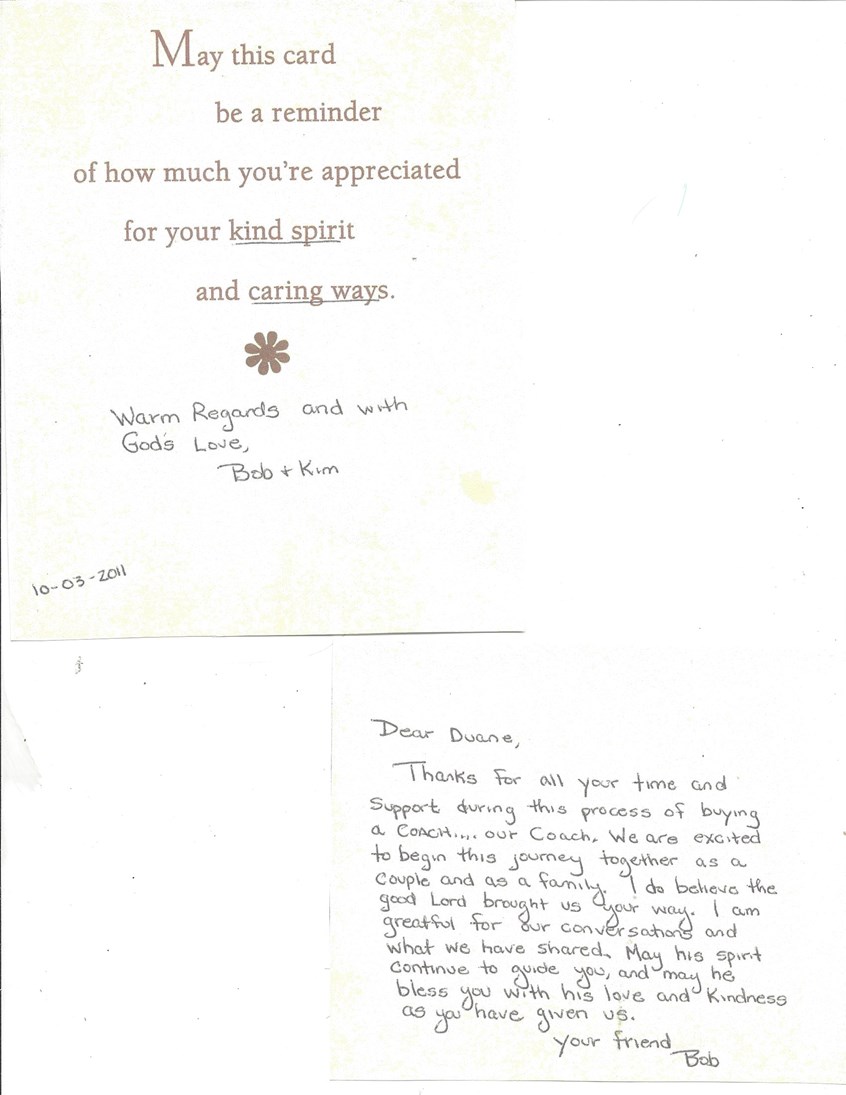 May this card
be a reminder
of how much you're appreciated
for your kind spirit
and caring ways.
Warm Regards and with
God's Love,
Bob + Kim
10-03-2011
Dear Duane,
Thanks for all your time and
support during this process of buying
a COACH.... our Coach. We are excited
to begin this journey together as a
couple and as a family. I do believe the
good Lord brought us your way. I am
greatful for our conversations and
what we have shared. May his spirit
continue to guide you, and may he
bless you with his love and kindness
as you have given us.
your friend
Bob